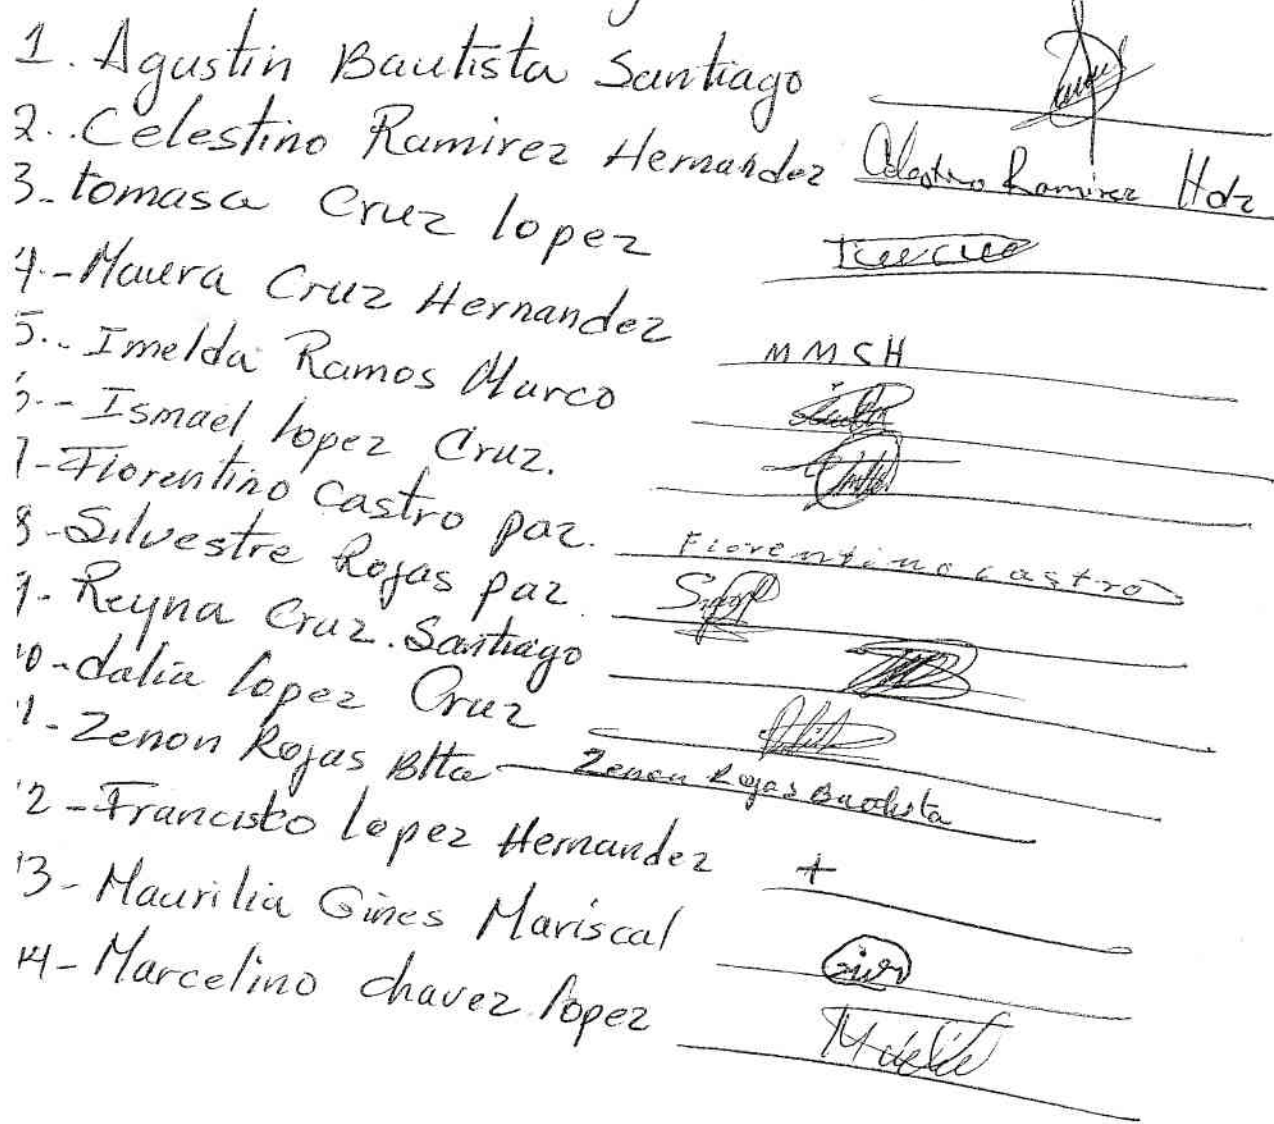 1. Agustin Bautista Santiago
2.. Celestino Ramirez Hernandez Celestino Ramirez Hdz
3- tomasa Cruz lopez
4.- Maura Cruz Hernandez MMCH
5.. Imelda Ramos Marco
- Ismael lopez Cruz.
- Florentino castro paz. Florentino castro
8- Silvestre Rojas paz
9- Reyna Cruz. Santiago
10- dalia lopez Cruz
11- Zenon Rojas Btta Zenon Rojas Bautista
12- Francisco lopez Hernandez +
13- Maurilia Gines Mariscal
14- Marcelino chavez lopez